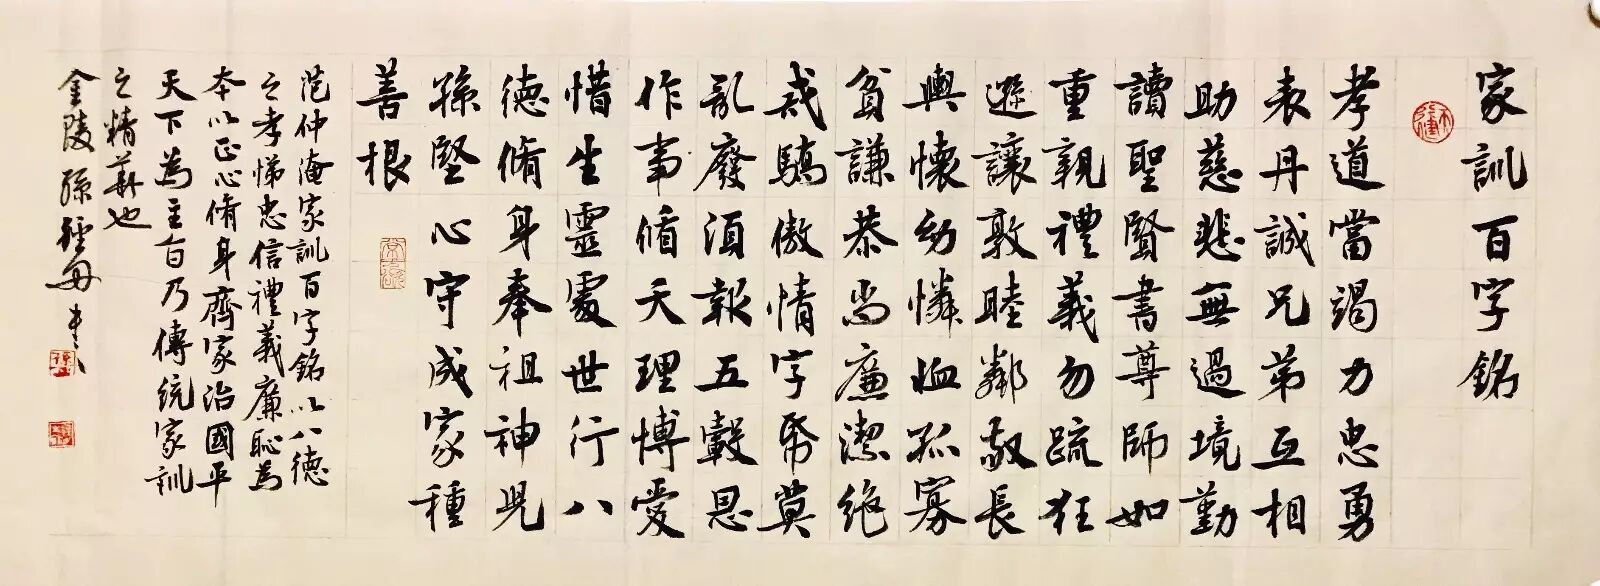 家訓百字銘
孝道當竭力忠勇
表丹誠兄弟互相
助慈悲無過境勤
讀聖賢書尊師如
重親禮義勿疏狂
遜讓敦睦鄰敬長
與懷幼憐恤孤寡
貧謙恭尚廉潔絕
戒驕傲情字帋莫
亂廢須報五穀恩
作事循天理博愛
惜生靈處世行八
德脩身奉祖神兒
孫堅心守成家種
善根
范仲淹家訓百字銘以八德
之孝悌忠信禮義廉恥為
本以正心脩身齊家治國平
天下為主旨乃傳統家訓
之精華也
金陵孫